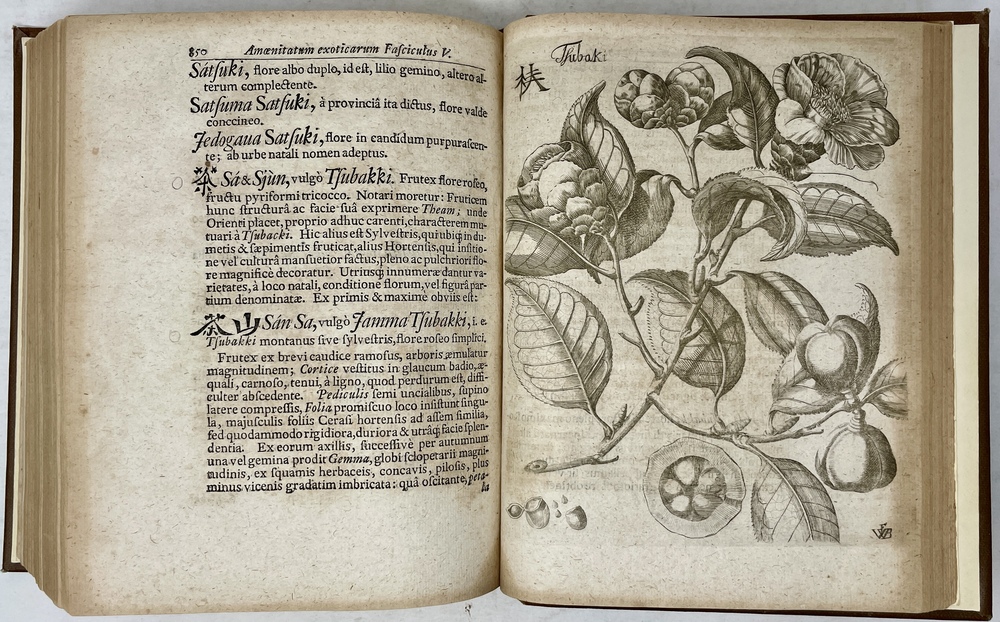 850 Amœnitatum exoticarum Fasciculus V.
Sátſuki, flore albo duplo, id eſt, lilio gemino, altero al-
terum complectente.
Satſuma Satſuki, à provinciâ ita dictus, flore valde
conccineo.
Jedogaua Satſuki, flore in candidum purpuraſcen-
te; ab urbe natali nomen adeptus.
茶 Sá & Sjùn, vulgò Tſubakki. Frutex flore roſeo,
fructu pyriformi tricocco. Notari moretur: Fruticem
hunc ſtructurâ ac facie ſuâ exprimere Theam; unde
Orienti placet, proprio adhuc carenti, characterem mu-
tuari à Tſubacki. Hic alius eſt Sylveſtris, qui ubiq; in du-
metis & ſæpimentis fruticat, alius Hortenſis, qui inſitio-
ne vel culturâ manſuetior factus, pleno ac pulchriori flo-
re magnificè decoratur. Utriusq; innumeræ dantur va-
rietates, à loco natali, conditione florum, vel figurâ par-
tium denominatæ. Ex primis & maxime obviis eſt:
茶山 Sán Sa, vulgò Jamma Tſubakki, i. e.
Tſubakki montanus ſive ſylveſtris, flore roſeo ſimplici.
Frutex ex brevi caudice ramoſus, arboris æmulatur
magnitudinem; Cortice veſtitus in glaucum badio, æ-
quali, carnoſo, tenui, à ligno, quod perdurum eſt, diffi-
culter abſcedente. Pediculis ſemi uncialibus, ſupino
latere compreſſis, Folia promiſcuo loco inſiſtunt ſingu-
la, majuſculis foliis Ceraſi hortenſis ad aſſem ſimilia,
ſed quodammodo rigidiora, duriora & utráq; facie ſplen-
dentia. Ex eorum axillis, ſucceſſivè per autumnum
una vel gemina prodit Gemma, globi ſclopetarii magni-
tudinis, ex ſquamis herbaceis, concavis, piloſis, plus
minus vicenis gradatim imbricata: quâ oſcitante, peta-
la
Tſubaki